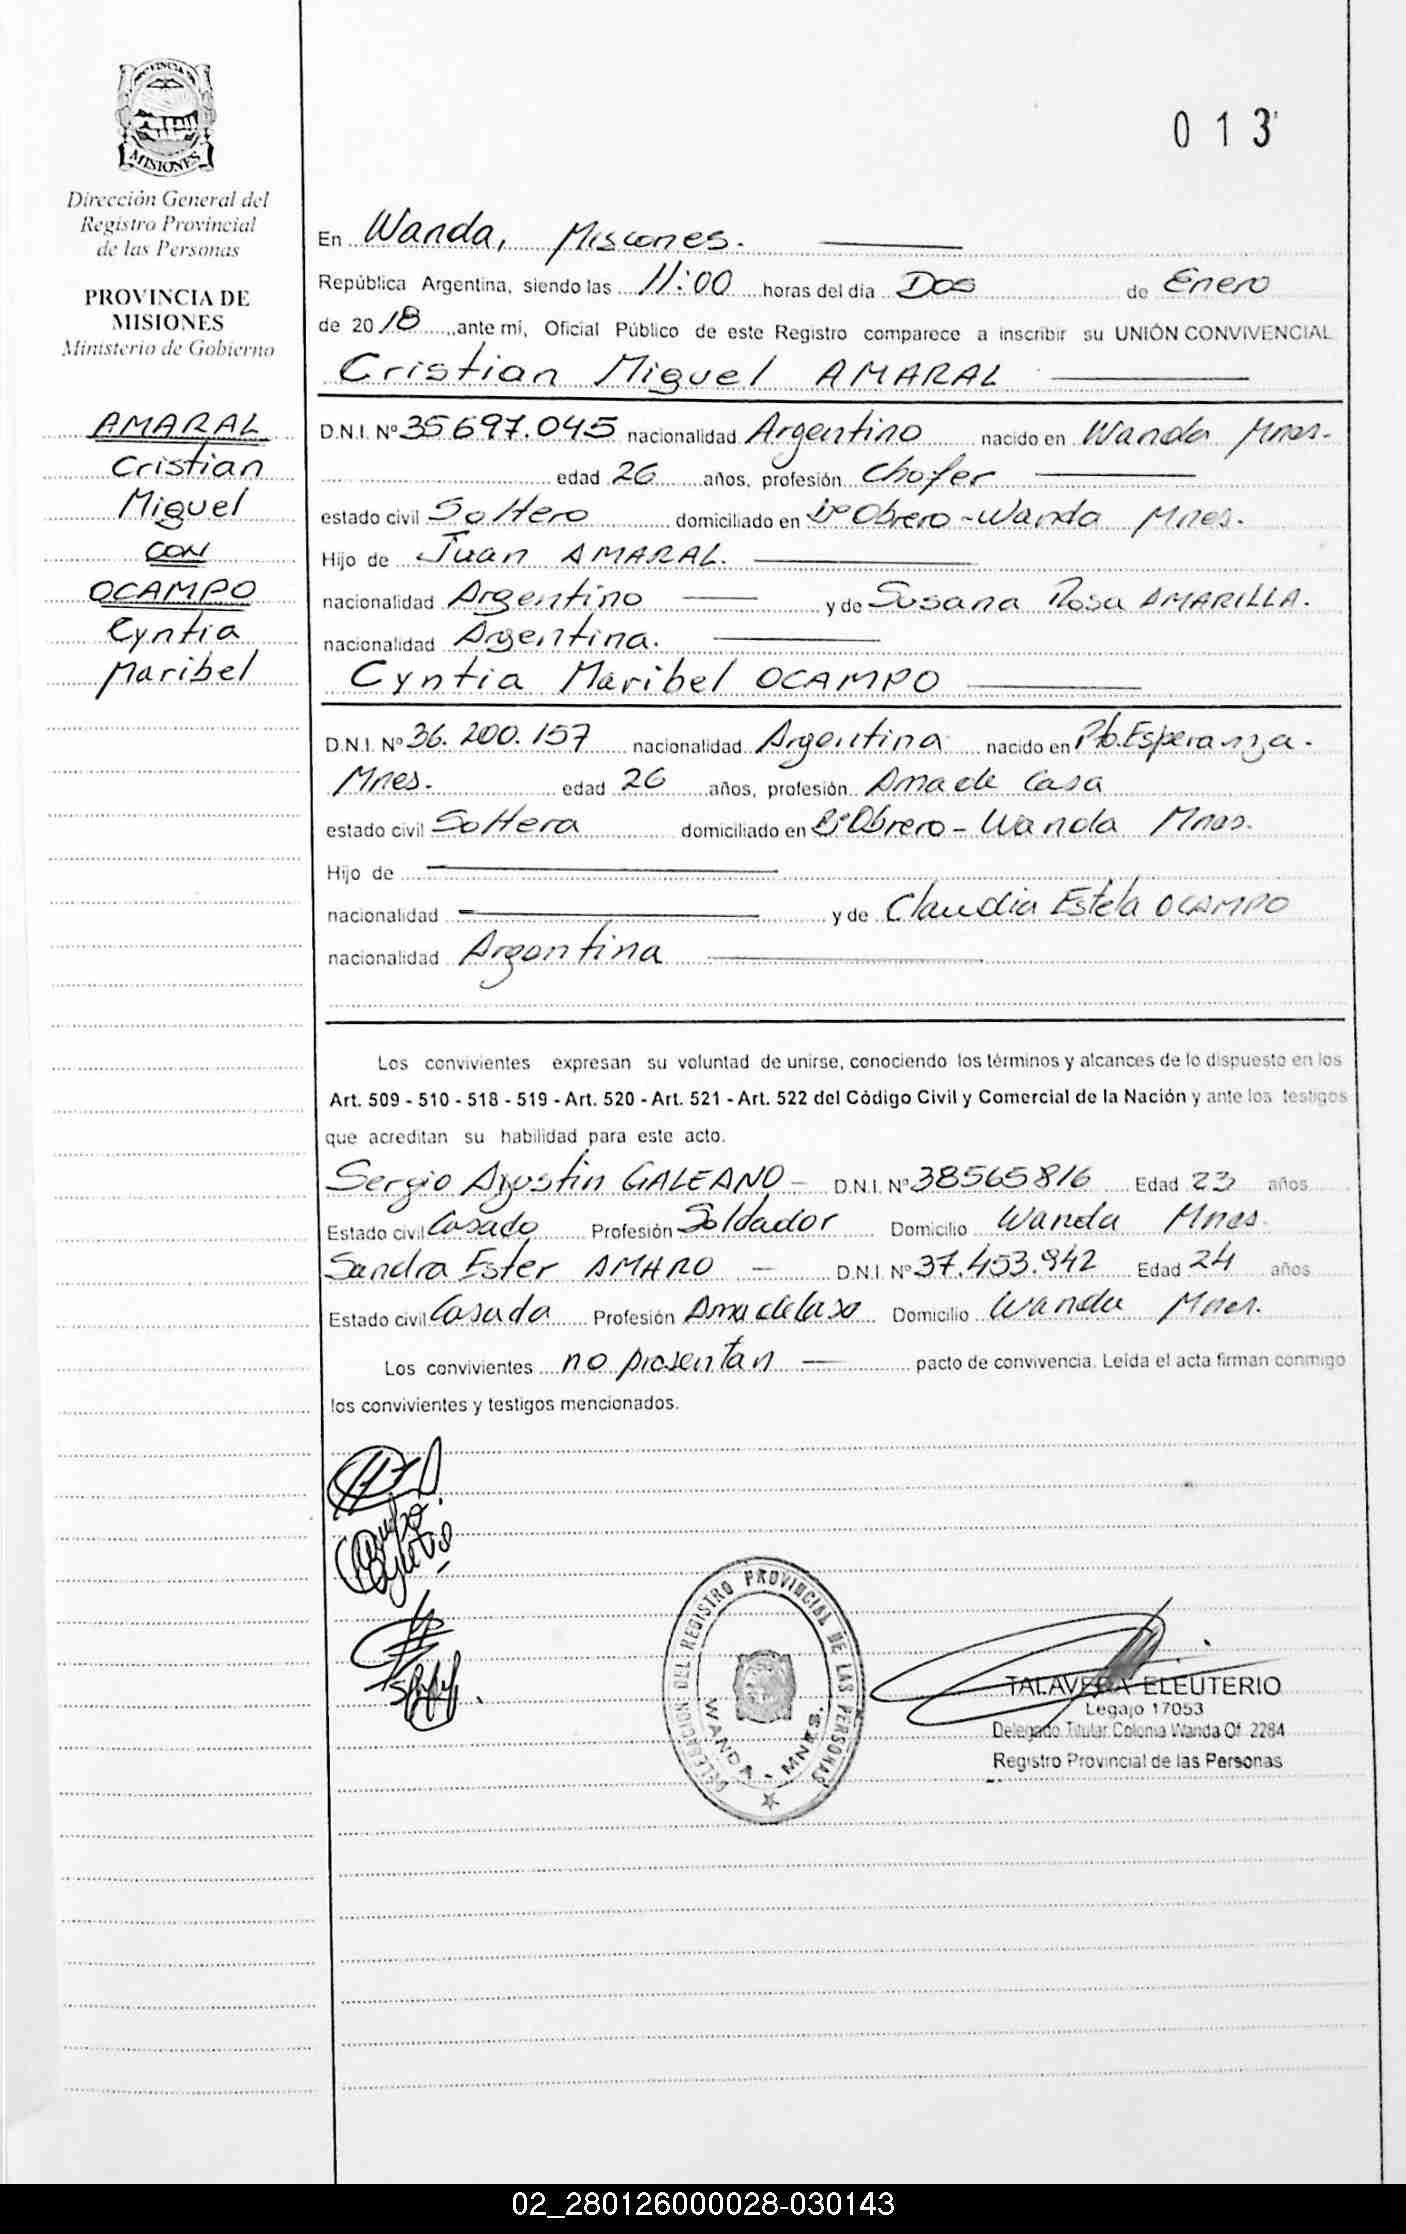 PROVINCIA DE
MISIONES
Dirección General del
Registro Provincial
de las Personas
PROVINCIA DE
MISIONES
Ministerio de Gobierno
AMARAL
Cristian
Miguel
CON
OCAMPO
Cyntia
Maribel
013
En Wanda, Misiones.
República Argentina, siendo las 11:00 horas del día Dos de Enero
de 2018, ante mí, Oficial Público de este Registro comparece a inscribir su UNIÓN CONVIVENCIAL
Cristian Miguel AMARAL
D.N.I. Nº 35697.045 nacionalidad Argentino nacido en Wanda Mnes.
edad 26 años, profesión Chofer
estado civil Soltero domiciliado en Bº Obrero - Wanda Mnes.
Hijo de Juan AMARAL.
nacionalidad Argentino y de Susana Rosa AMARILLA.
nacionalidad Argentina.
Cyntia Maribel OCAMPO
D.N.I. Nº 36.200.157 nacionalidad Argentina nacido en Pto. Esperanza.
Mnes. edad 26 años, profesión Ama de Casa
estado civil Soltera domiciliado en Bº Obrero - Wanda Mnes.
Hijo de
nacionalidad y de Claudia Estela OCAMPO
nacionalidad Argentina
Los convivientes expresan su voluntad de unirse, conociendo los términos y alcances de lo dispuesto en los
Art. 509 - 510 - 518 - 519 - Art. 520 - Art. 521 - Art. 522 del Código Civil y Comercial de la Nación y ante los testigos
que acreditan su habilidad para este acto.
Sergio Agustin GALEANO - D.N.I. Nº 38565816 Edad 23 años
Estado civil Casado Profesión Soldador Domicilio Wanda Mnes.
Sandra Ester AMARO - D.N.I. Nº 37.453.942 Edad 24 años
Estado civil Casada Profesión Ama de Casa Domicilio Wanda Mnes.
Los convivientes no presentan pacto de convivencia. Leída el acta firman conmigo
los convivientes y testigos mencionados.
DELEGACION DEL REGISTRO PROVINCIAL DE LAS PERSONAS
WANDA - MNES.
TALAVERA ELEUTERIO
Legajo 17053
Delegado Titular Colonia Wanda Of. 2284
Registro Provincial de las Personas
02_280126000028-030143